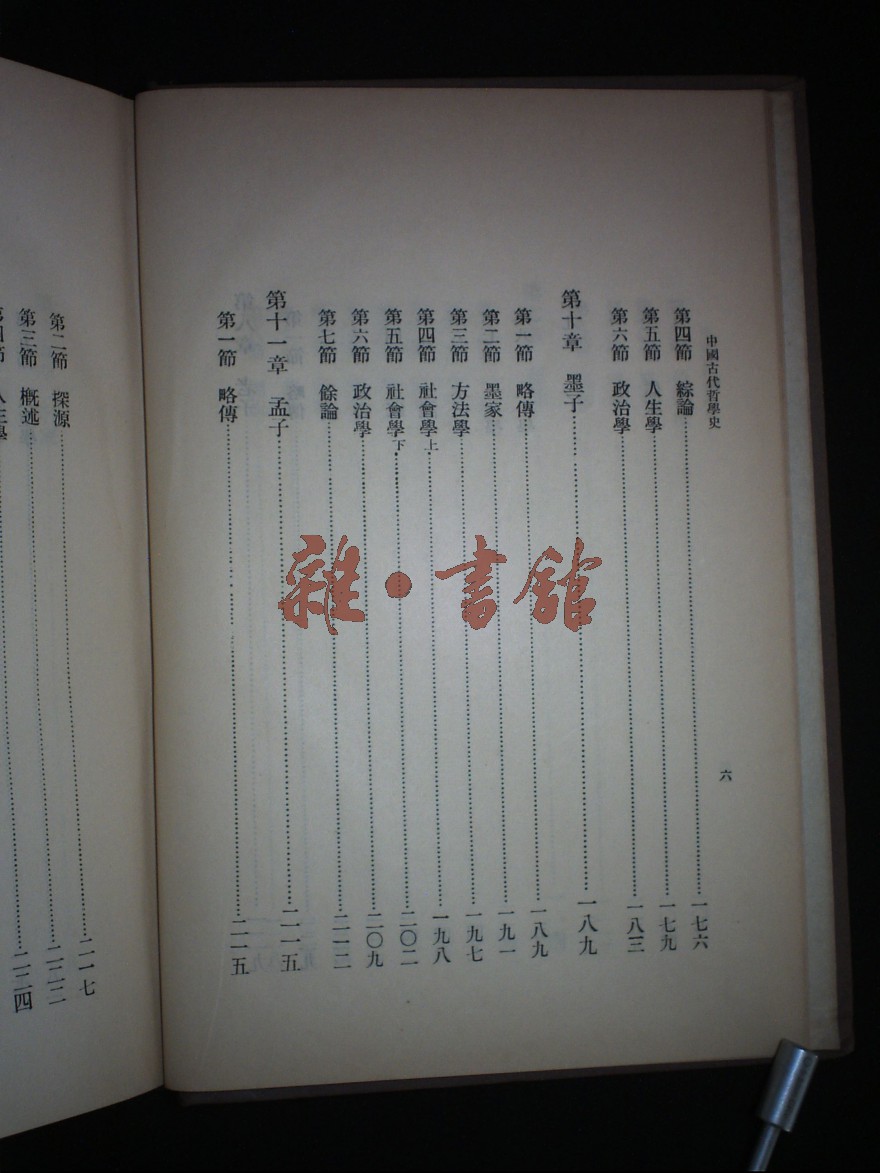 中國古代哲學史
六
第四節 綜論……一七六
第五節 人生學……一七九
第六節 政治學……一八三
第十章 墨子……一八九
第一節 略傳……一八九
第二節 墨家……一九一
第三節 方法學……一九七
第四節 社會學上……一九八
第五節 社會學下……二〇二
第六節 政治學……二〇九
第七節 餘論……二一二
第十一章 孟子……二一五
第一節 略傳……二一五
第二節 探源……二一七
第三節 概述……二二二
節 人生學……二二四
雜·書館